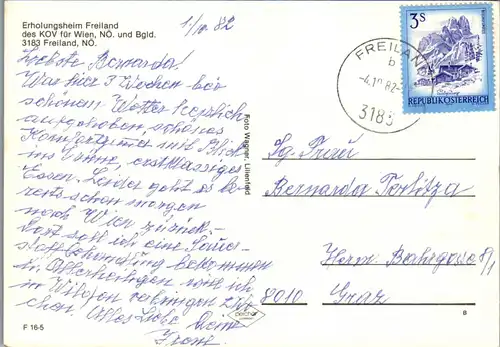 Erholungsheim Freiland
des KOV für Wien, NÖ. und Bgld.
3183 Freiland, NÖ.
1./10. 82
Liebste Bernarda!
War hier 3 Wochen bei
schönem Wetter herrlich
aufgehoben schönes
Komfortzimmer mit Blick
ins Grüne, erstklassiges
Essen. Leider geht es be-
reits schon morgen
nach Wien zurück. -
Dort soll ich eine
bekommen
In Allerheiligen werde ich
in
Alles Liebe Deine
F 16-5
Foto Wagner, Lilienfeld
FREILAND
b
-4.10.82-
3183
3S
REPUBLIK ÖSTERREICH
Sg. Frau
Bernarda
Herm. Bahrgasse 8/1
8010 Graz
B